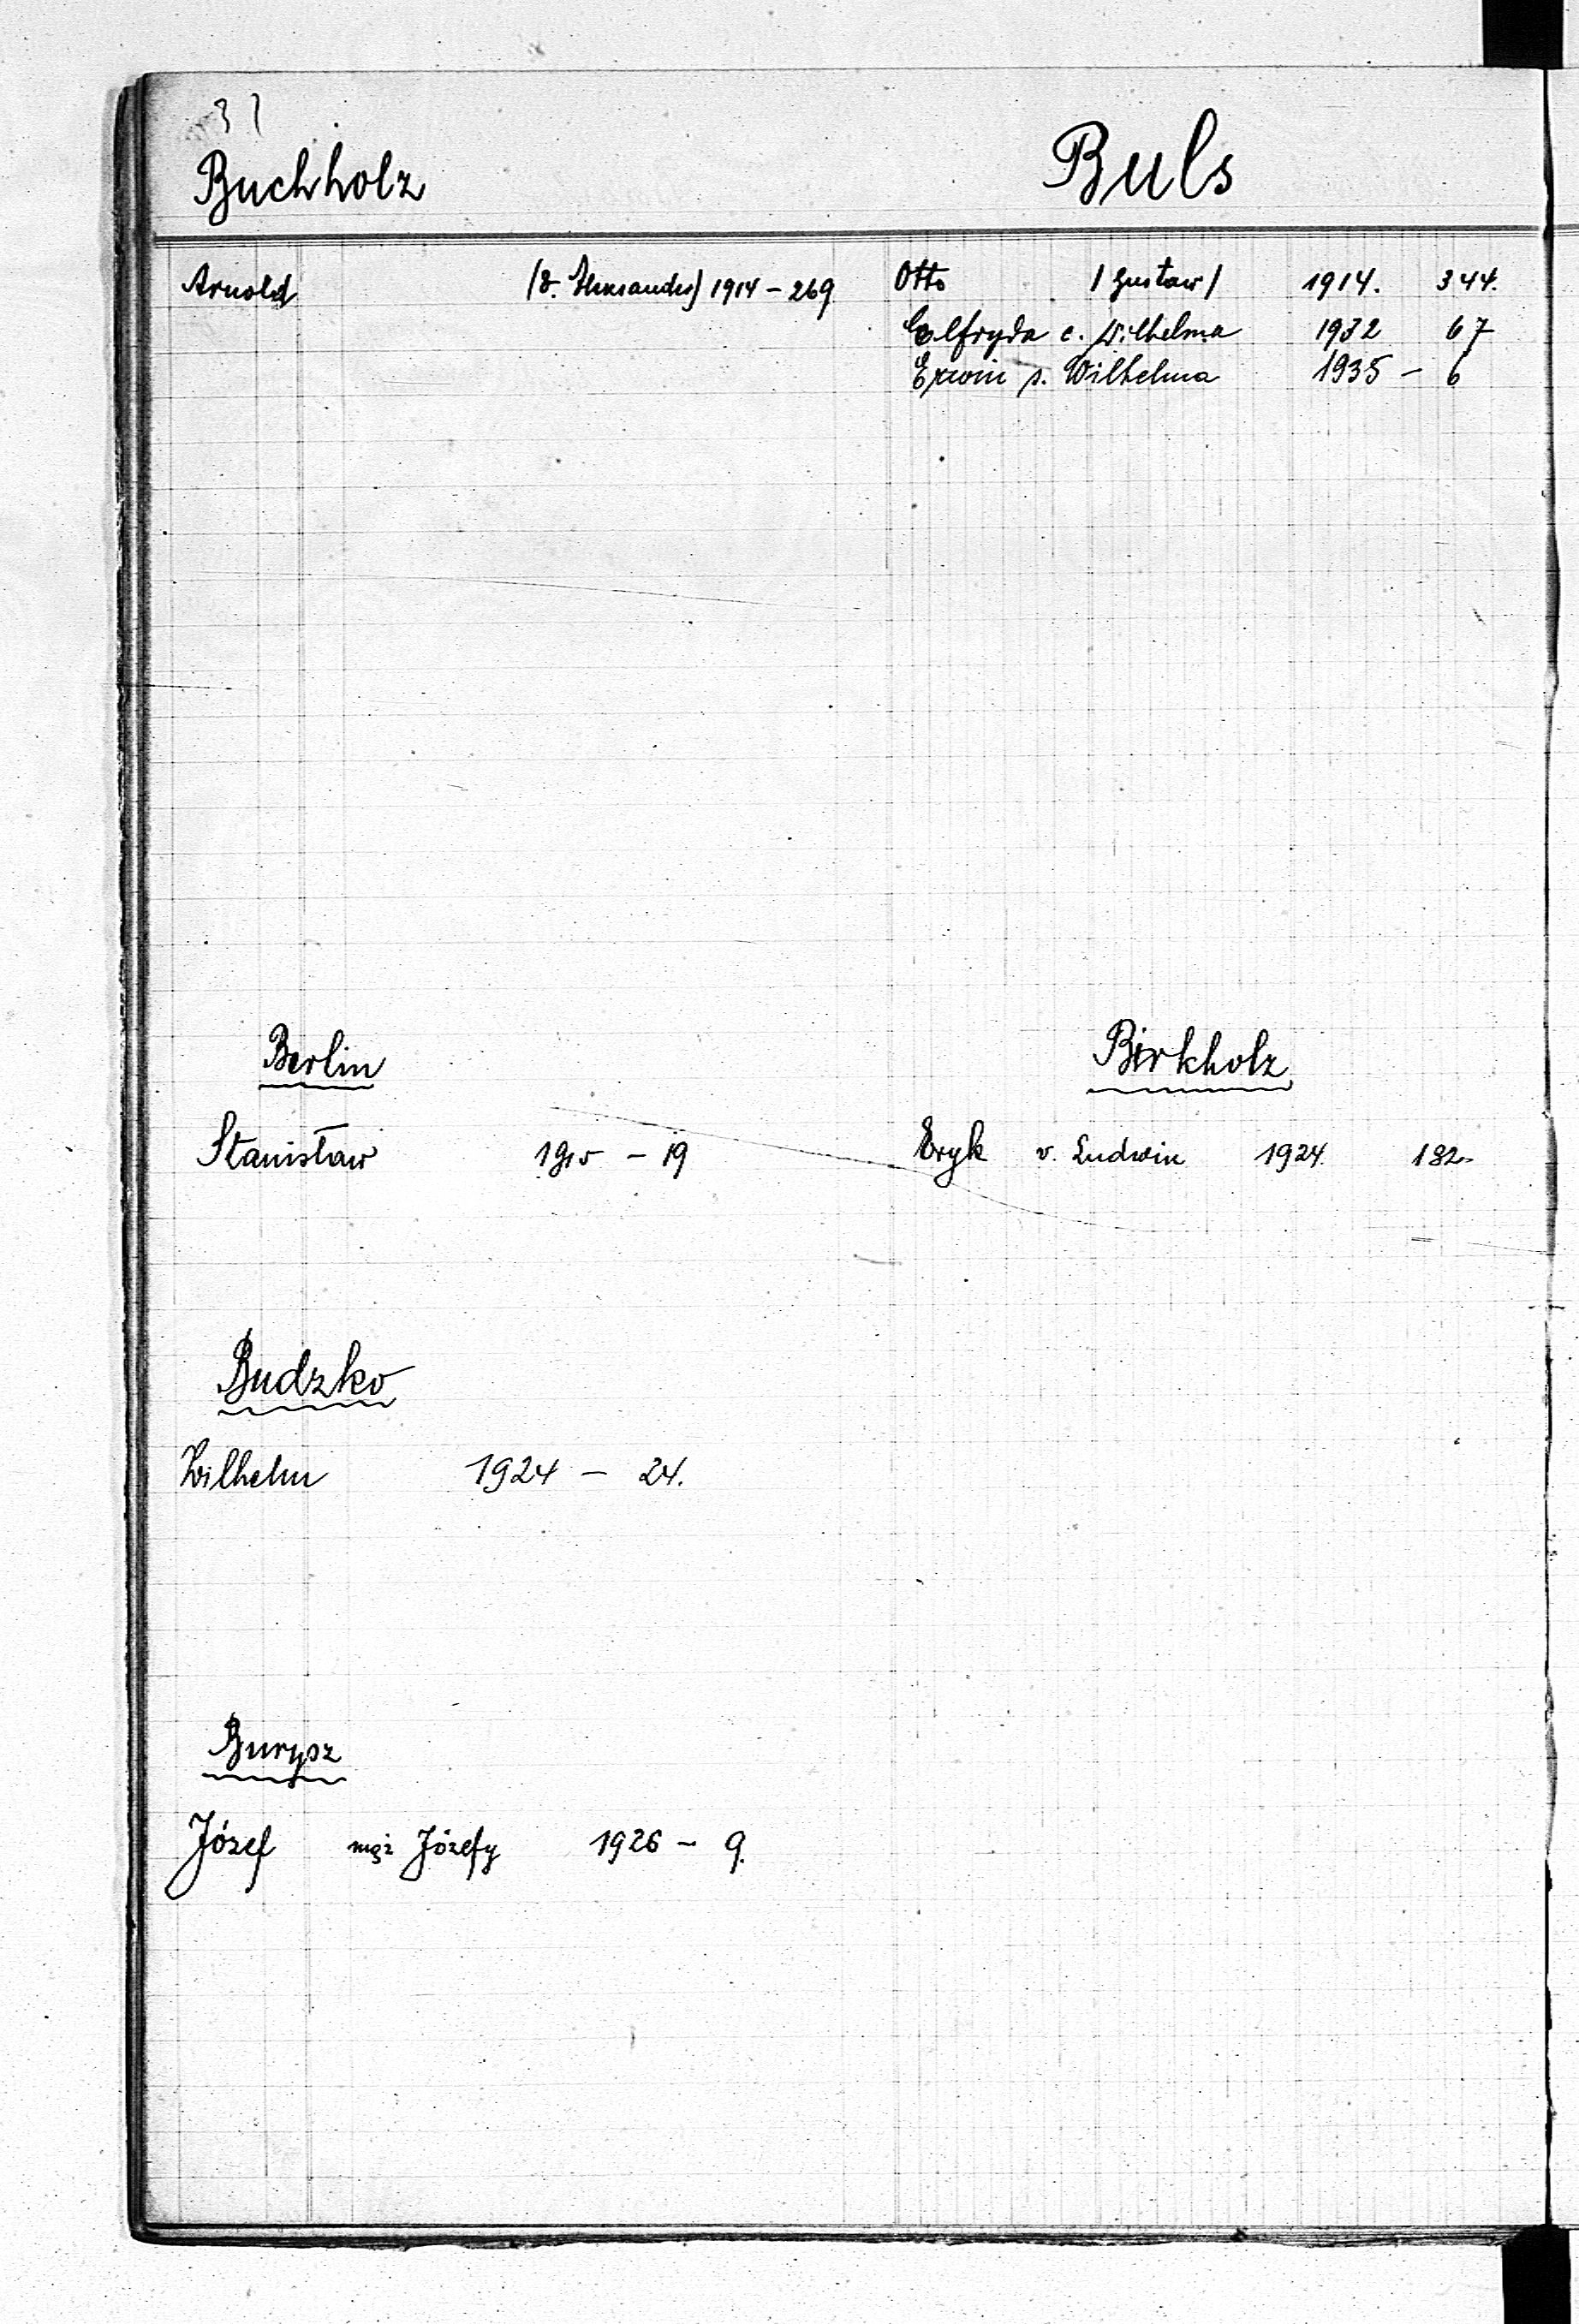 31
Buchholz
Arnold (v. Alexander) 1914 - 269
Buls
Otto /Gustaw/ 1914. 344.
Elfryda c. Wilhelma 1932 67
Erwin s. Wilhelma 1935 - 6
Berlin
Stanisław 1915 - 19
Birkholz
Eryk v. Ludwik 1924. 182.
Budzko
Wilhelm 1924 - 24.
Burysz
Józef mąż Józefy 1926 - 9.